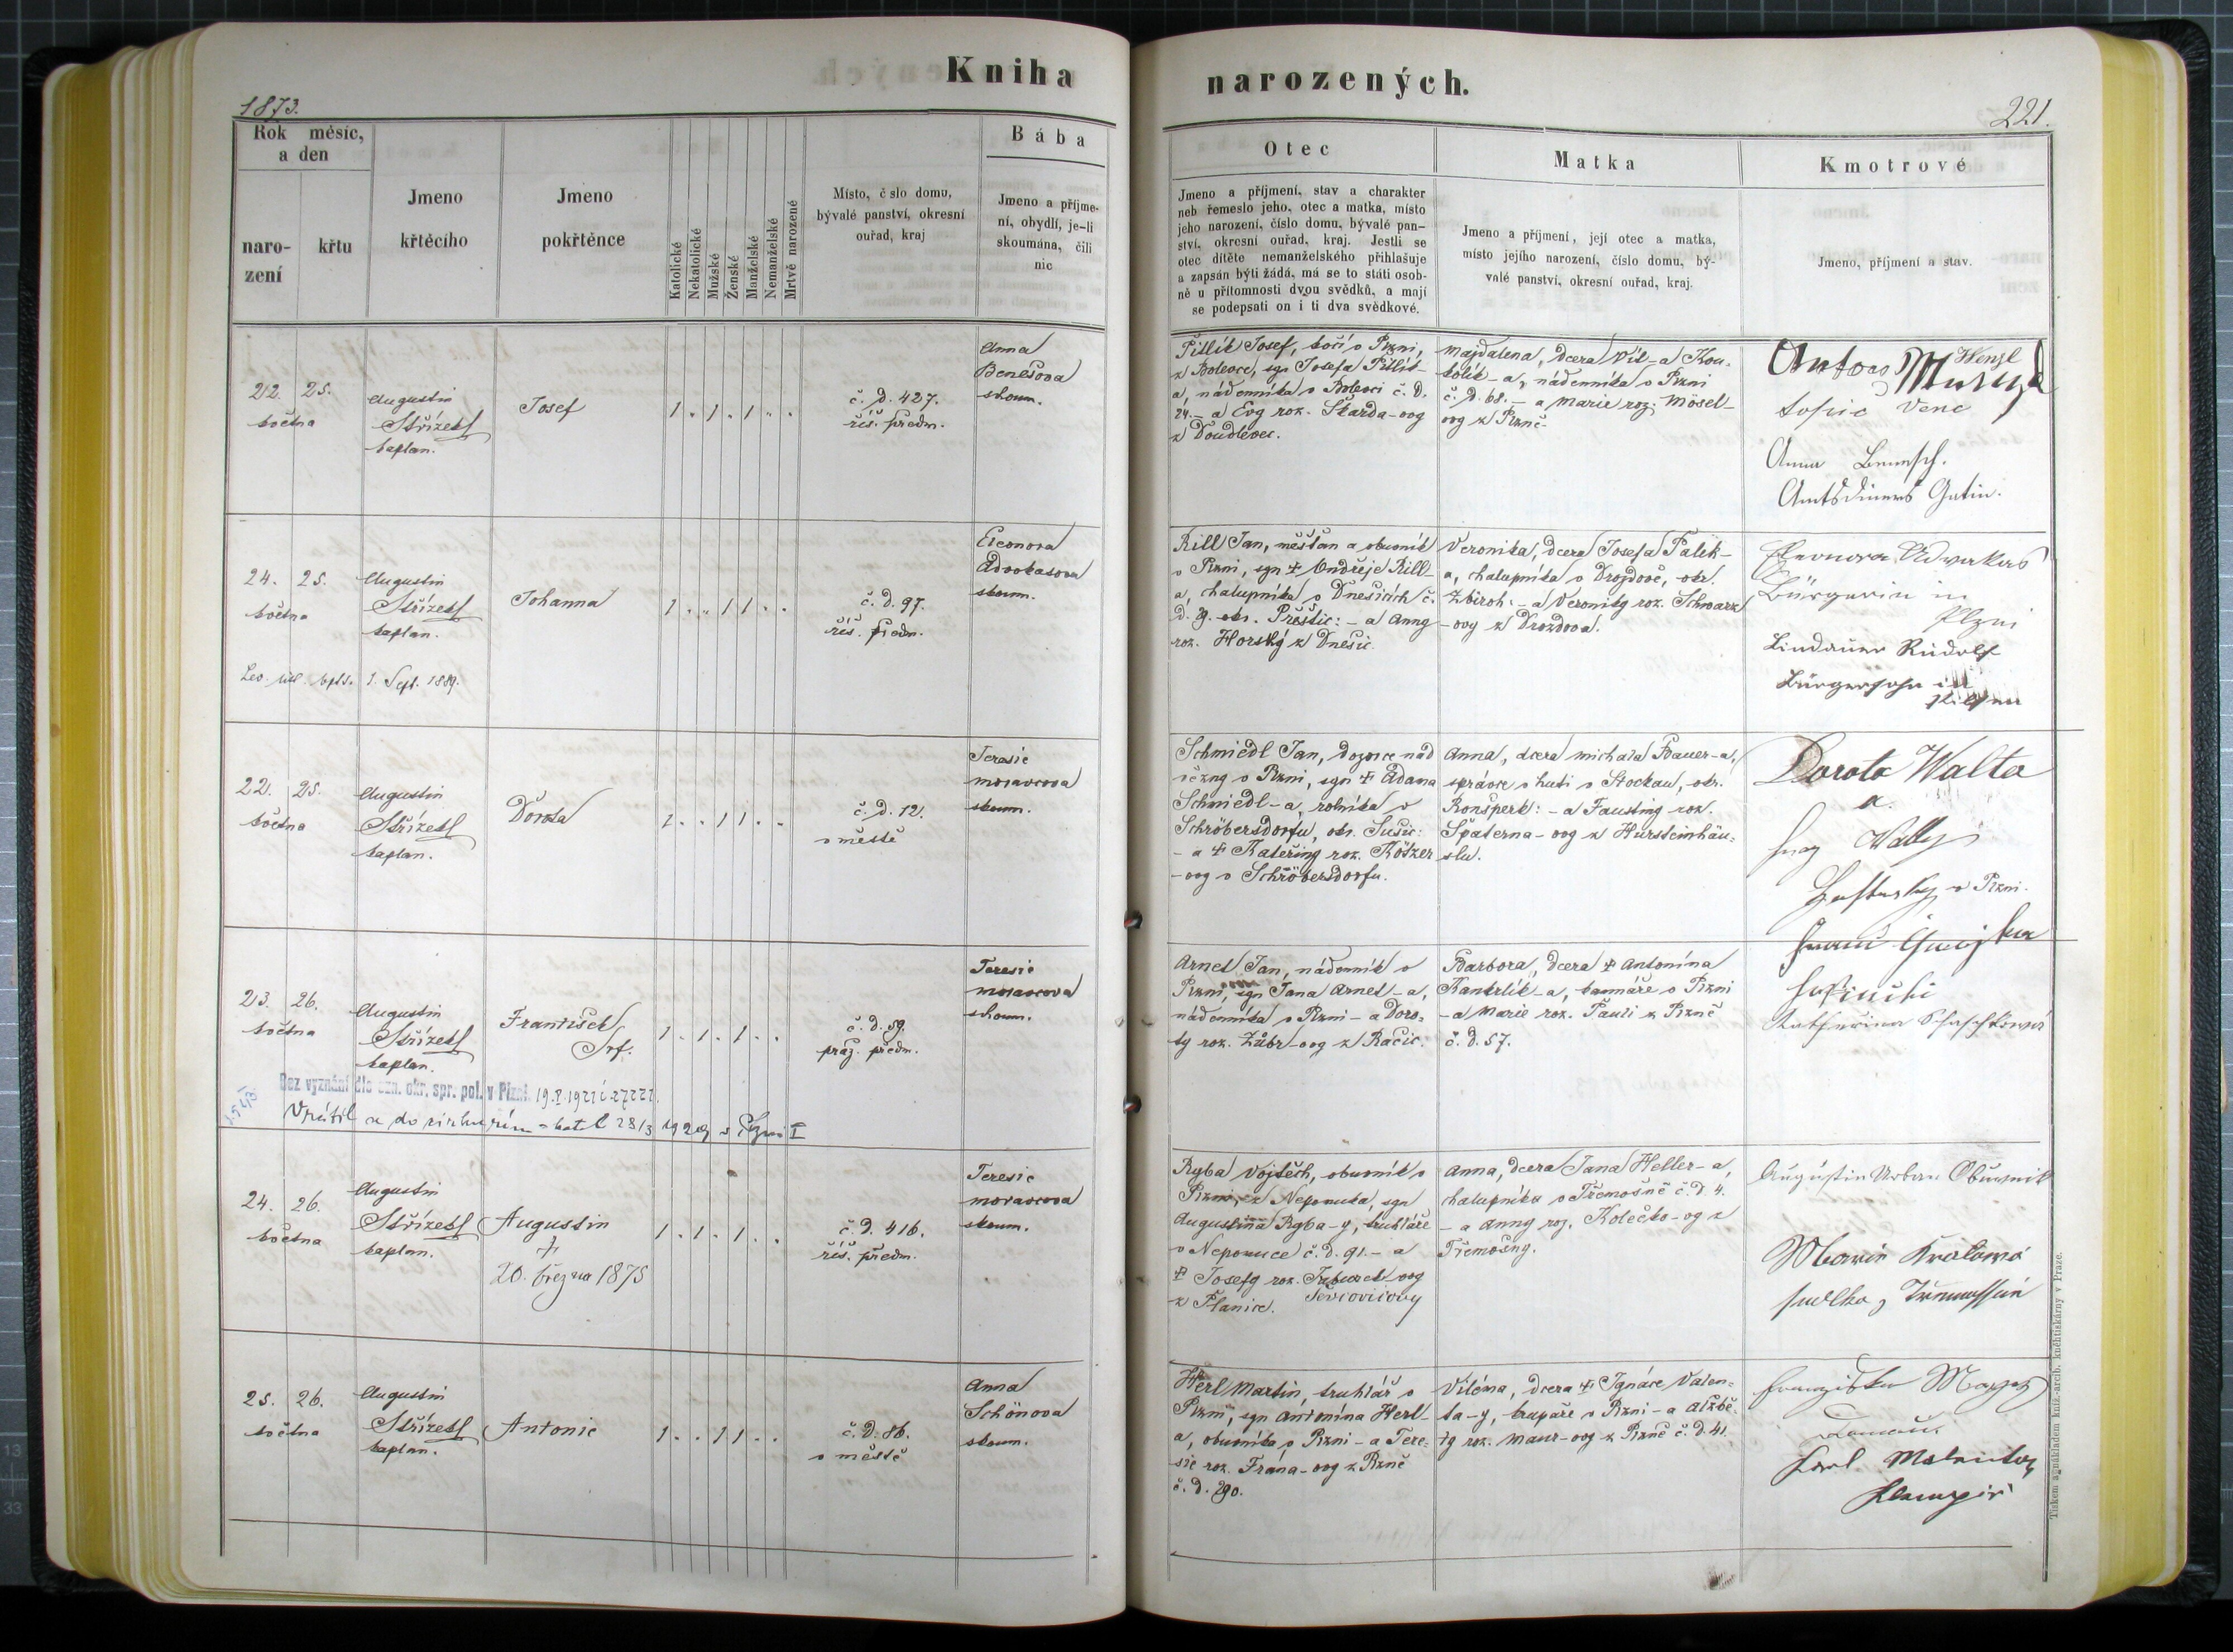 Kniha
narozených.
1873.
221.
Rok měsíc,
a den
naro-
zení
křtu
Jmeno
křtěcího
Jmeno
pokřtěnce
Katolické
Nekatolické
Mužské
Ženské
Manželské
Nemanželské
Mrtvě narozené
Místo, č slo domu,
bývalé panství, okresní
ouřad, kraj
Bába
Jmeno a příjme-
ní, obydlí, je-li
skoumána, čili
nic
Otec
Jmeno a příjmení, stav a charakter
neb řemeslo jeho, otec a matka, místo
jeho narození, číslo domu, bývalé pan-
ství, okresní ouřad, kraj. Jestli se
otec dítěte nemanželského přihlašuje
a zapsán býti žádá, má se to státi osob-
ně u přítomnosti dvou svědků, a mají
se podepsati on i ti dva svědkové.
Matka
Jmeno a příjmení, její otec a matka,
místo jejího narození, číslo domu, bý-
valé panství, okresní ouřad, kraj.
Kmotrové
Jmeno, příjmení a stav.
22. 25.
května
Augustin
Střízek
kaplan.
Josef
1 . 1 . 1 . .
č. d. 427.
říš. předm.
Anna
Benešova
skoum.
Pitlík Josef, kočí v Plzni,
z Bolevce, syn Josefa Pitlík-
a, nádenníka v Bolevci č. d.
24. - a Evy roz. Škarda-ovy
z Doudlevec.
Majdalena, dcera Vít-a Kou-
tolík-a, nádenníka v Plzni
č. d. 68. - a Marie roz. Mösel-
ovy z Plzně.
Anton
Wenzl
topic
Anna Benesch.
Amtsdieners Gatin.
24. 25.
května
Augustin
Střízek
kaplan.
Johanna
1 . . 1 1 . .
č. d. 97.
říš. předm.
Eleonora
Advokasova
skoum.
Lev. lit. bpts. 1. Sept. 1889.
Rill Jan, měšťan a obuvník
v Plzni, syn ‡ Ondřeje Rill-
a, chalupníka v Dnešicích č.
d. 9. okr. Přeštic: - a Anny
roz. Horský z Dnešic.
Veronika, dcera Josefa Palek-
a, chalupníka v Drozdově, okr.
Zbiroh: - a Veroniky roz. Schwarz
-ovy z Drozdova.
Eleonora Adwokas
Bürgerin in
Plzni
Lindauer Rudolf
Bürgersohn in
Pilsen
22. 25.
května
Augustin
Střízek
kaplan.
Dorota
1 . . 1 1 . .
č. d. 12.
v městě
Terasie
Moravcova
skoum.
Schmiedl Jan, dozorce nad
vězny v Plzni, syn ‡ Adama
Schmiedl-a, rolníka v
Schröbersdorfu, okr. Sušic:
- a ‡ Kateřiny roz. Kötzer
-ovy v Schröbersdorfu.
Anna, dcera Michala Bauer-a,
správce v huti v Stockau, okr.
Ronšperk: - a Faustiny roz.
Špaterna-ovy z Hürsteinhäu-
slu.
Dorota Walta
a.
v Plzni.
23. 26.
května
Augustin
Střízek
kaplan.
František
Srf.
1 . 1 . 1 . .
č. d. 59.
praž. předm.
Teresie
Moravcova
skoum.
Bez vyznání dle ozn. okr. spr. pol. v Plzni
Vrátil se do církve řím-kat. 28/3 1929 v Plzni I
Arnet Jan, nádenník v
Plzni, syn Jana Arnet-a,
nádenníka v Plzni - a Doro-
ty roz. Zübr-ovy z Račic.
Barbora, dcera ‡ Antonína
Kantrlík-a, kamnáře v Plzni
- a Marie roz. Pauli z Plzně
č. d. 57.
24. 26.
května
Augustin
Střízek
kaplan.
Augustin
†
20. března 1875
1 . 1 . 1 . .
č. d. 416.
říš. předm.
Teresie
Moravcova
skoum.
Ryba Vojtěch, obuvník v
Plzni, z Nepomuka, syn
Augustina Ryba-y, truhláře
v Nepomuce č. d. 91. - a
‡ Josefy roz.
z Planice.
Anna, dcera Jana Heller-a,
chalupníka v Třemošně č. d. 4.
- a Anny roz. Kolečko-ovy z
Třemošny.
Augustin Urban Obuwnik
Marie Kralowá
25. 26.
května
Augustin
Střízek
kaplan.
Antonie
1 . . 1 1 . .
č. d. 86.
v městě
Anna
Schönova
skoum.
Herl Martin, truhlář v
Plzni, syn Antonína Herl-
a, obuvníka v Plzni - a Tere-
sie roz. Frána-ovy z Plzně
č. d. 290.
Viléma, dcera ‡ Ignáce Valen-
ta-y, krupaře v Plzni - a Alžbě-
ty roz. Maur-ovy z Plzně č. d. 41.
Karl
Tiskem a nákladem kníž.-arcib. kněhtiskárny v Praze.